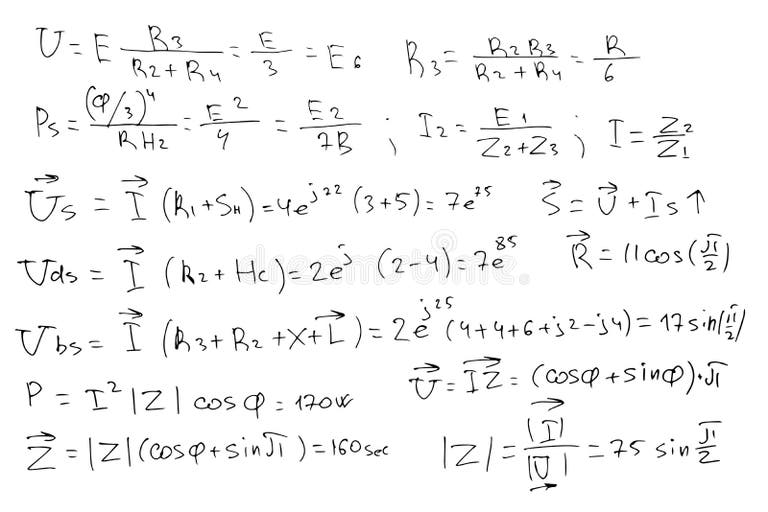 U = E R3/(R2+R4) = E/3 = E6   R3 = R2R3/(R2+R4) = R/6
Ps = (φ/3)^4/RHz = E^2/4 = E2/7B ; I2 = E1/(Z2+Z3) ; I = Z2/Z1
U⃗s = I⃗ (R1+SH) = 4e^j22 (3+5) = 7e^75   S⃗ = U⃗ + Is↑
Uds = I⃗ (R2+Hc) = 2e^j (2-4) = 7e^85   R⃗ = 11cos(π/2)
Ubs = I⃗ (R3+R2+X+L⃗) = 2e^j25 (4+4+6+j2-j4) = 17sin(π/2)
P = I^2|Z| cosφ = 170W   U⃗ = I⃗Z⃗ = (cosφ+sinφ)·π
Z⃗ = |Z|(cosφ+sinπ) = 160sec   |Z| = |I⃗|/|U⃗| = 75 sin π/2
dreamstime.